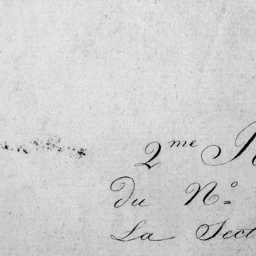 2me
du N°
La Sect